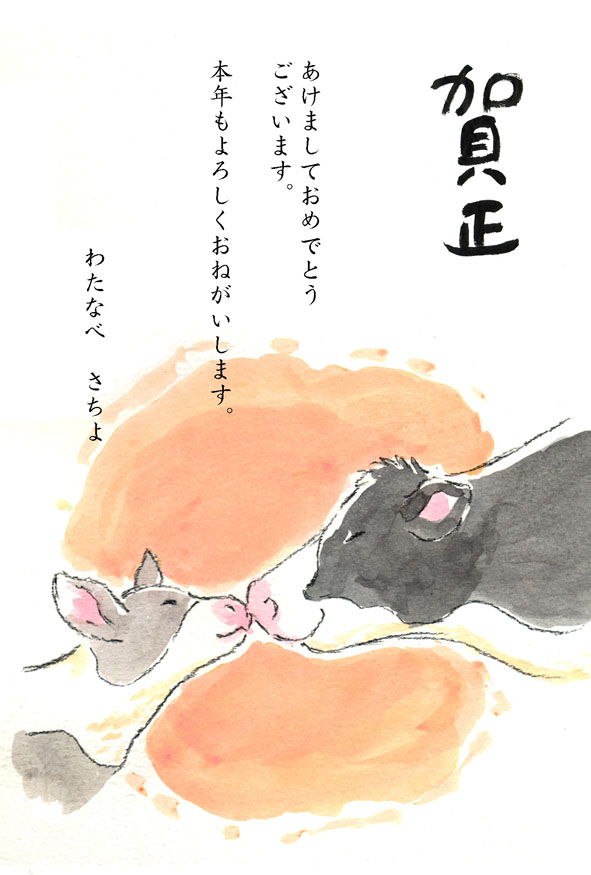 賀正
あけましておめでとう
ございます。
本年もよろしくおねがいします。
わたなべ　さちよ